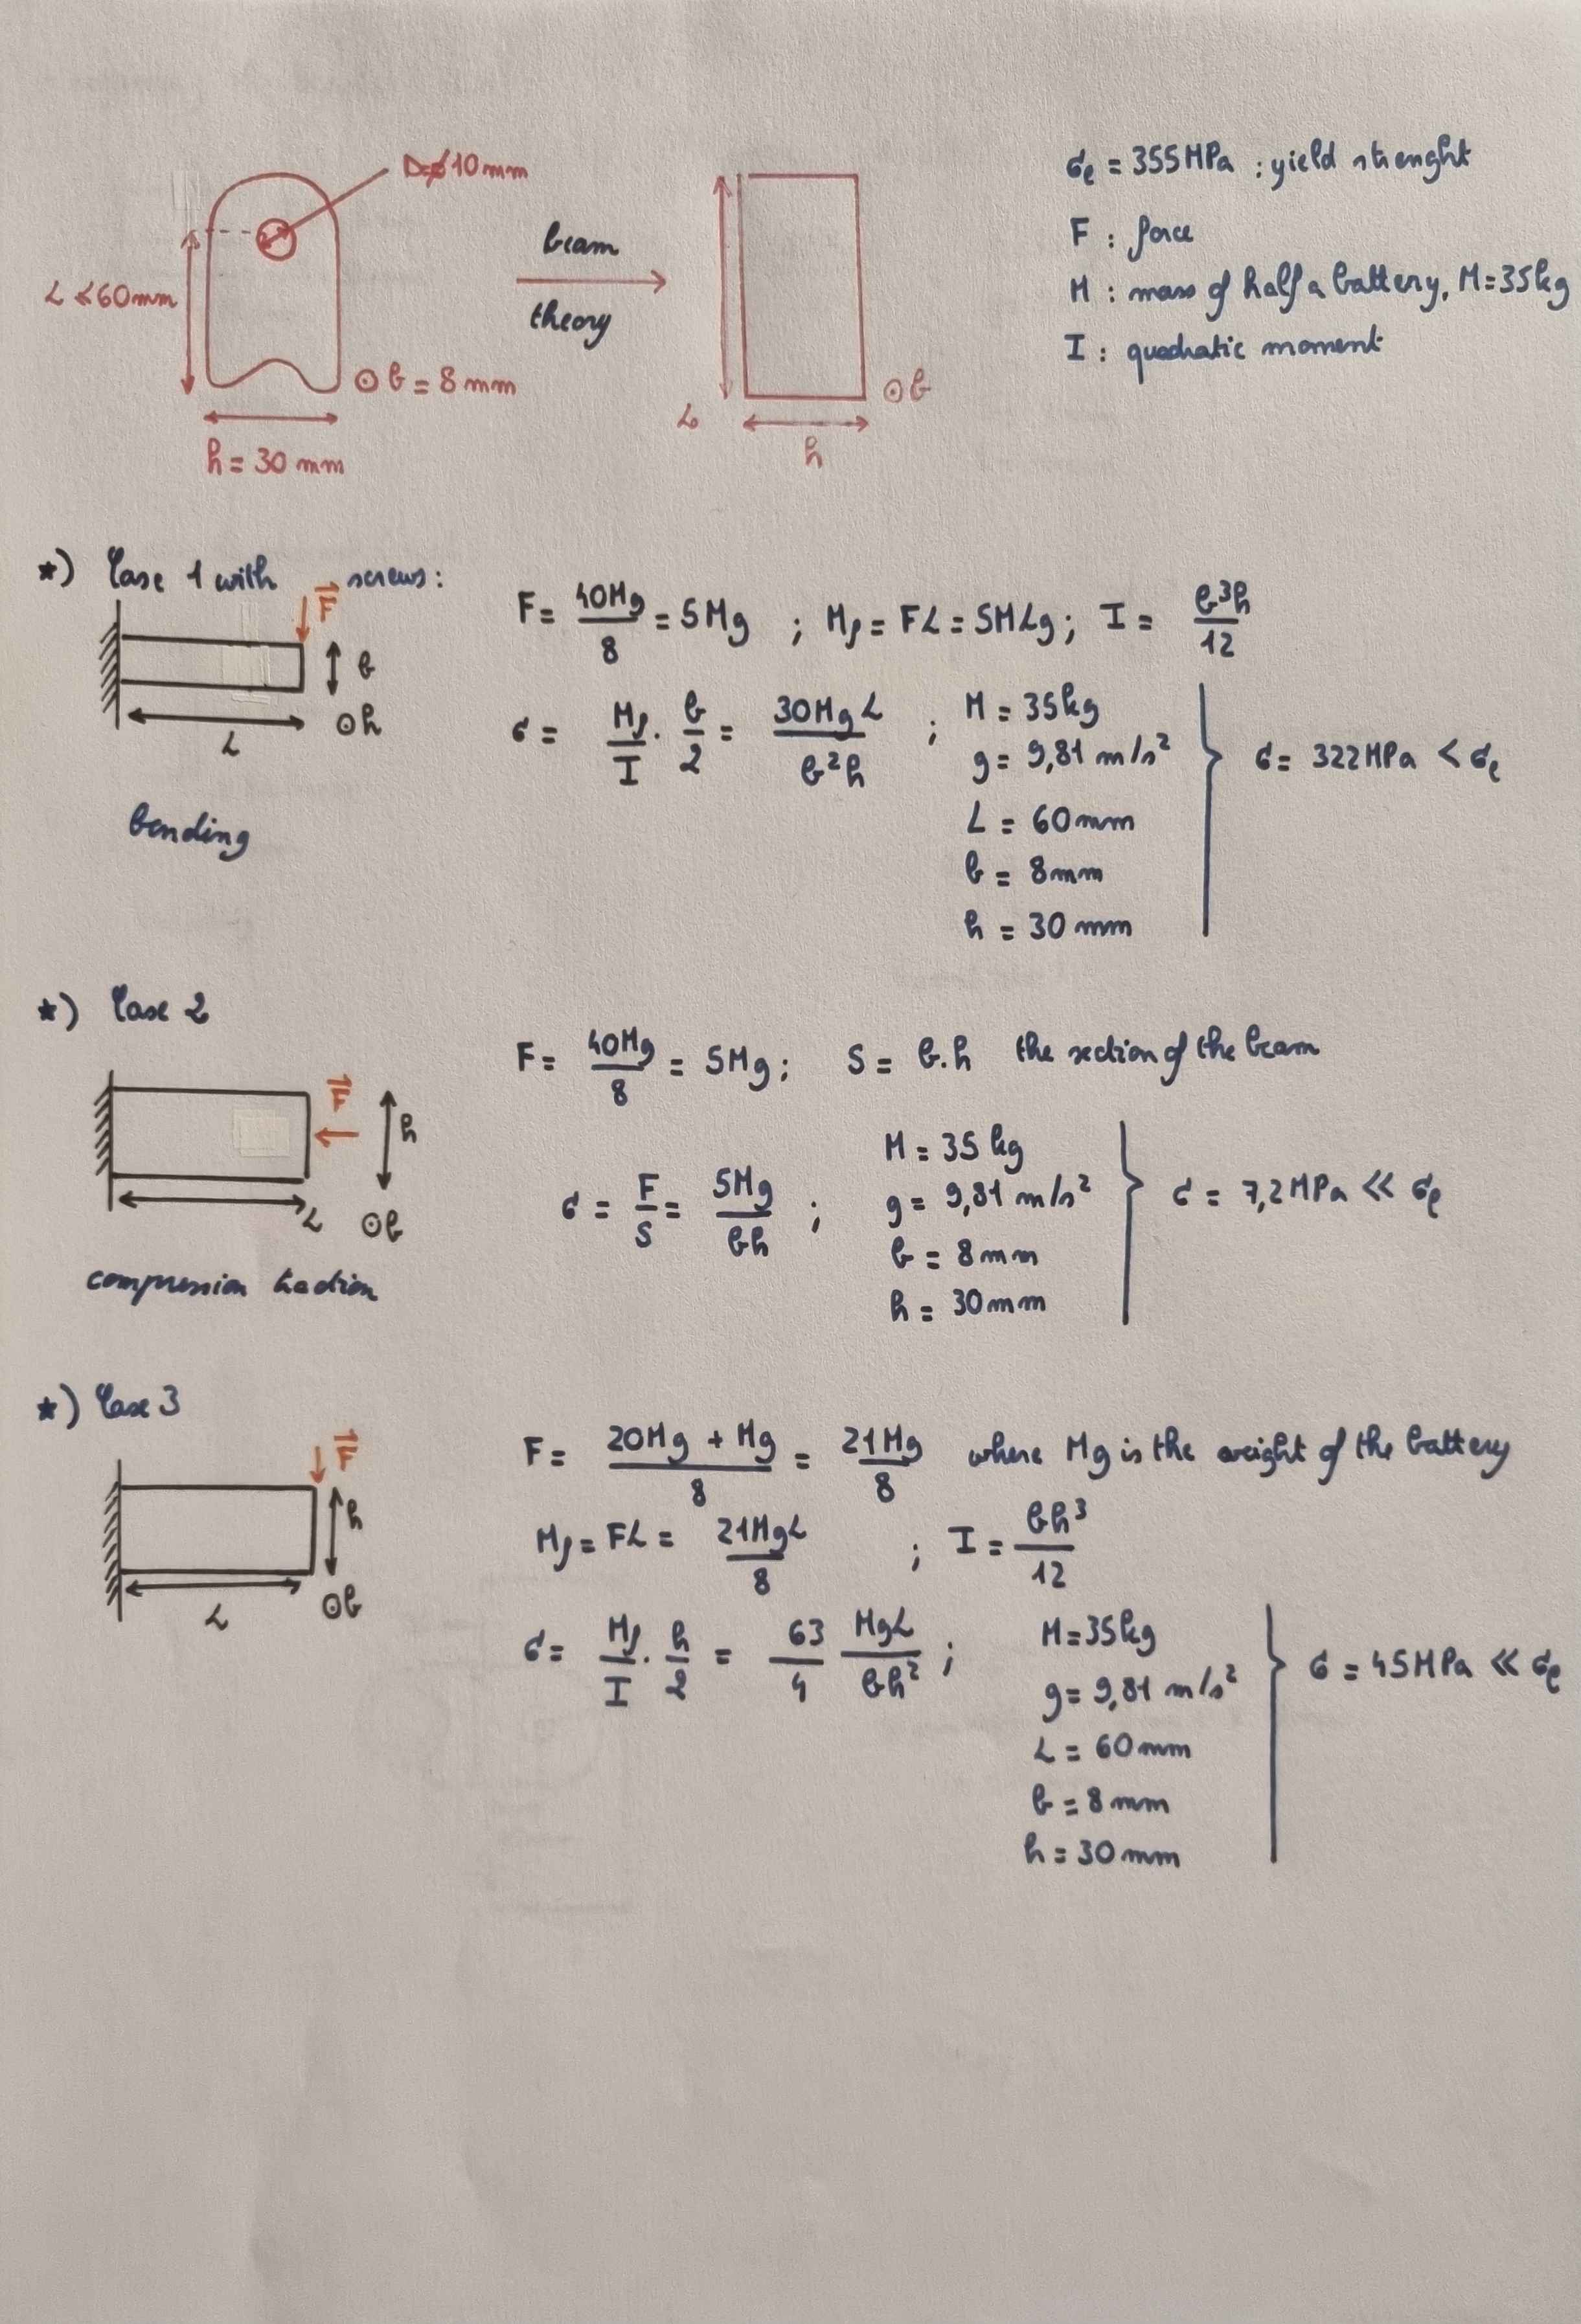 D=ϕ10mm
L ≤ 60mm
b = 8mm
h = 30 mm
beam
theory
L
h
b
σe = 355MPa : yield strenght
F : force
M : mass of half a battery, M=35kg
I : quadratic moment
*) Case 1 with screws:
F
b
L
h
bending
F = 40Mg/8 = 5Mg ; Mf = FL = 5MLg ; I = b³h/12
σ = Mf/I . b/2 = 30MgL/b²h ;
M = 35kg
g = 9,81 m/s²
L = 60mm
b = 8mm
h = 30 mm
σ = 322MPa < σe
*) Case 2
F
h
L
b
compression traction
F = 40Mg/8 = 5Mg ; S = b.h the section of the beam
σ = F/S = 5Mg/bh ;
M = 35 kg
g = 9,81 m/s²
b = 8mm
h = 30mm
σ = 7,2MPa << σe
*) Case 3
F
h
L
b
F = 20Mg + Mg/8 = 21Mg/8 where Mg is the weight of the battery
Mf = FL = 21MgL/8 ; I = bh³/12
σ = Mf/I . h/2 = 63/4 MgL/bh² ;
M=35kg
g = 9,81 m/s²
L = 60mm
b = 8mm
h = 30mm
σ = 45MPa << σe